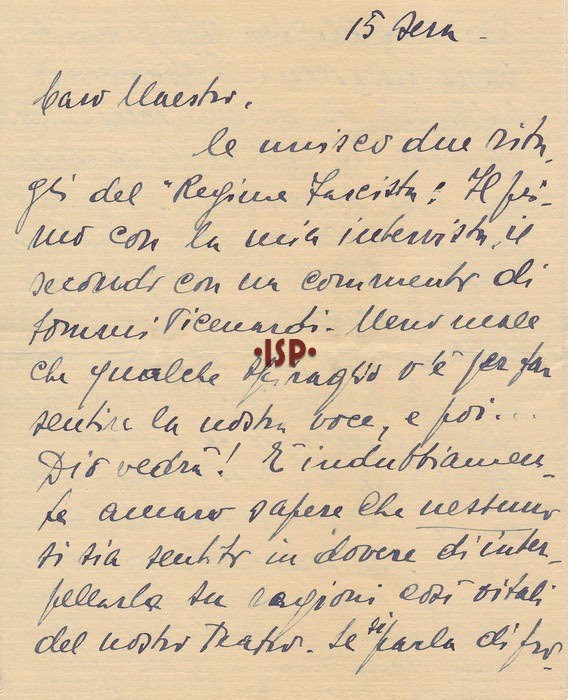 15 sera.
Caro Maestro,
le unisco due rita-
gli del "Regime Fascista". Il pri-
mo con la mia intervista, il
secondo con un commento di
Sommi Picenardi. Meno male
che qualche spiraglio v'è per far
sentire la nostra voce, e poi...
Dio vedrà! È indubbiamen-
te amaro sapere che nessuno
si sia sentito in dovere di inter-
pellarla su ragioni così vitali
del nostro Teatro. Se si parla di fro-
·ISP·